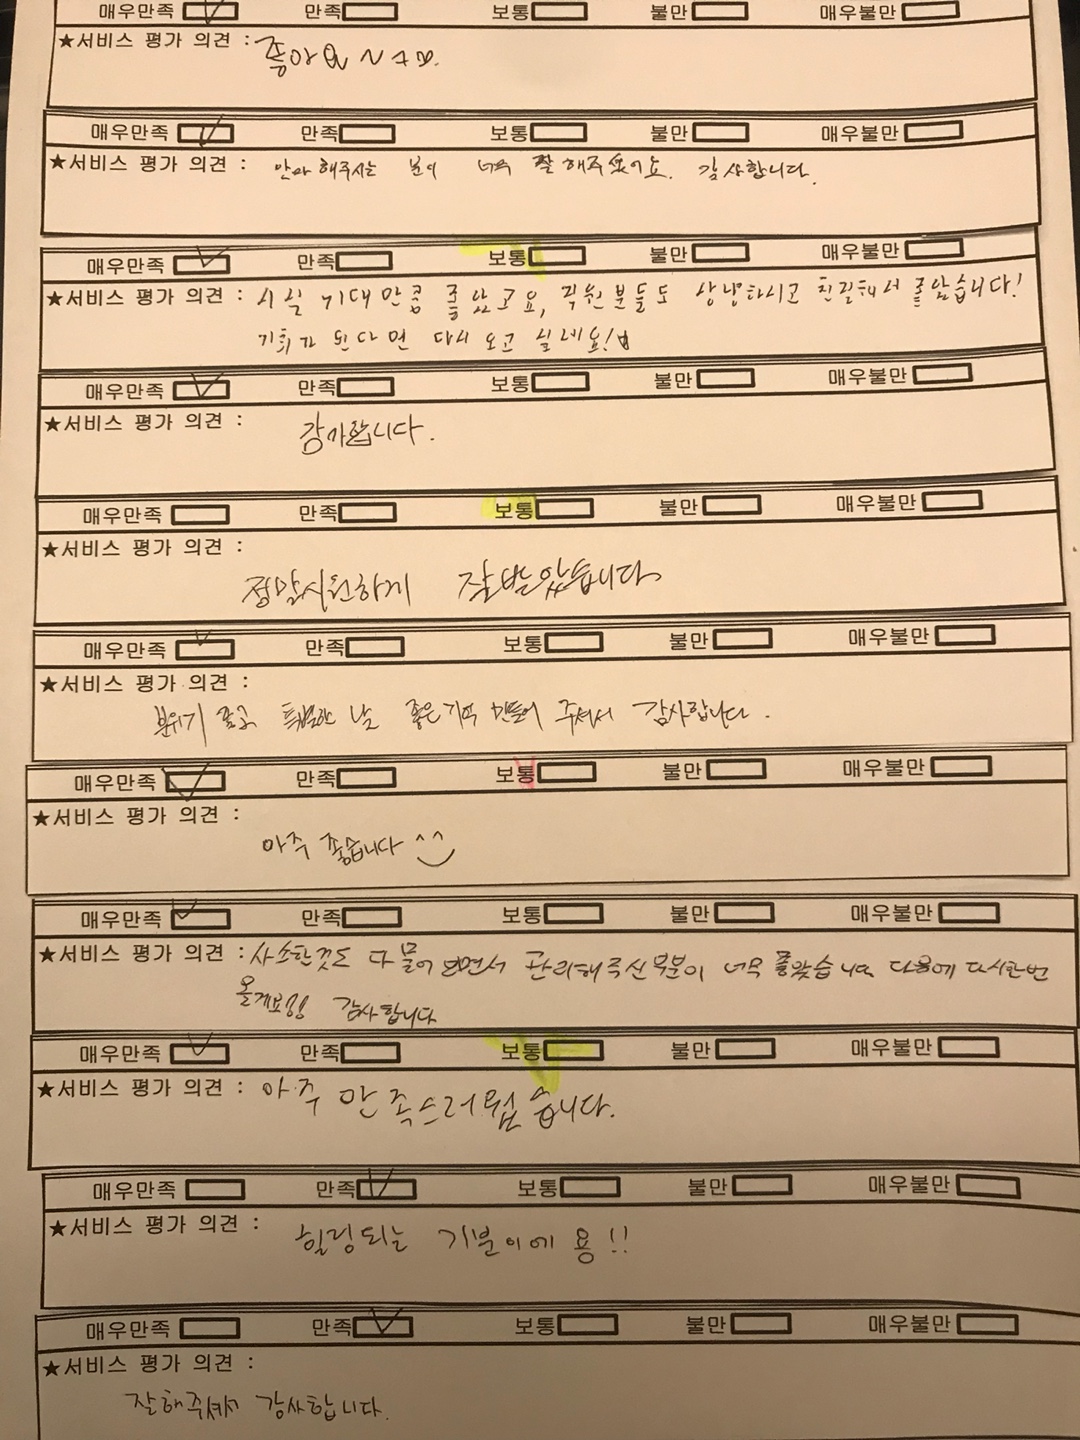 매우만족 만족 보통 불만 매우불만
★서비스 평가 의견 : 좋아요
매우만족 만족 보통 불만 매우불만
★서비스 평가 의견 : 안마 해주시는 분이 너무 잘 해주셨어요. 감사합니다.
매우만족 만족 보통 불만 매우불만
★서비스 평가 의견 : 시설 기대만큼 좋았고요, 직원분들도 상냥하시고 친절해서 좋았습니다!
기회가 된다면 다시 오고 싶네요!
매우만족 만족 보통 불만 매우불만
★서비스 평가 의견 : 감사합니다.
매우만족 만족 보통 불만 매우불만
★서비스 평가 의견 :
정말시원하게 잘받았습니다
매우만족 만족 보통 불만 매우불만
★서비스 평가 의견 :
분위기 좋고 특별한 날 좋은기억 만들어 주셔서 감사합니다.
매우만족 만족 보통 불만 매우불만
★서비스 평가 의견 :
아주 좋습니다 ^^
매우만족 만족 보통 불만 매우불만
★서비스 평가 의견 : 사소한것도 다 물어보면서 관리해주신 부분이 너무 좋았습니다 다음에 다시한번
올게요 감사합니다
매우만족 만족 보통 불만 매우불만
★서비스 평가 의견 : 아주 만족스러웠습니다.
매우만족 만족 보통 불만 매우불만
★서비스 평가 의견 :
힐링되는 기분이에용!!
매우만족 만족 보통 불만 매우불만
★서비스 평가 의견 :
잘해주셔서 감사합니다.